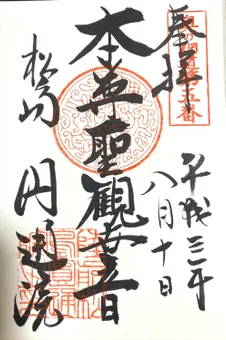 奉拝
平成三年
八月十日
本尊聖観世音
松島
円通院